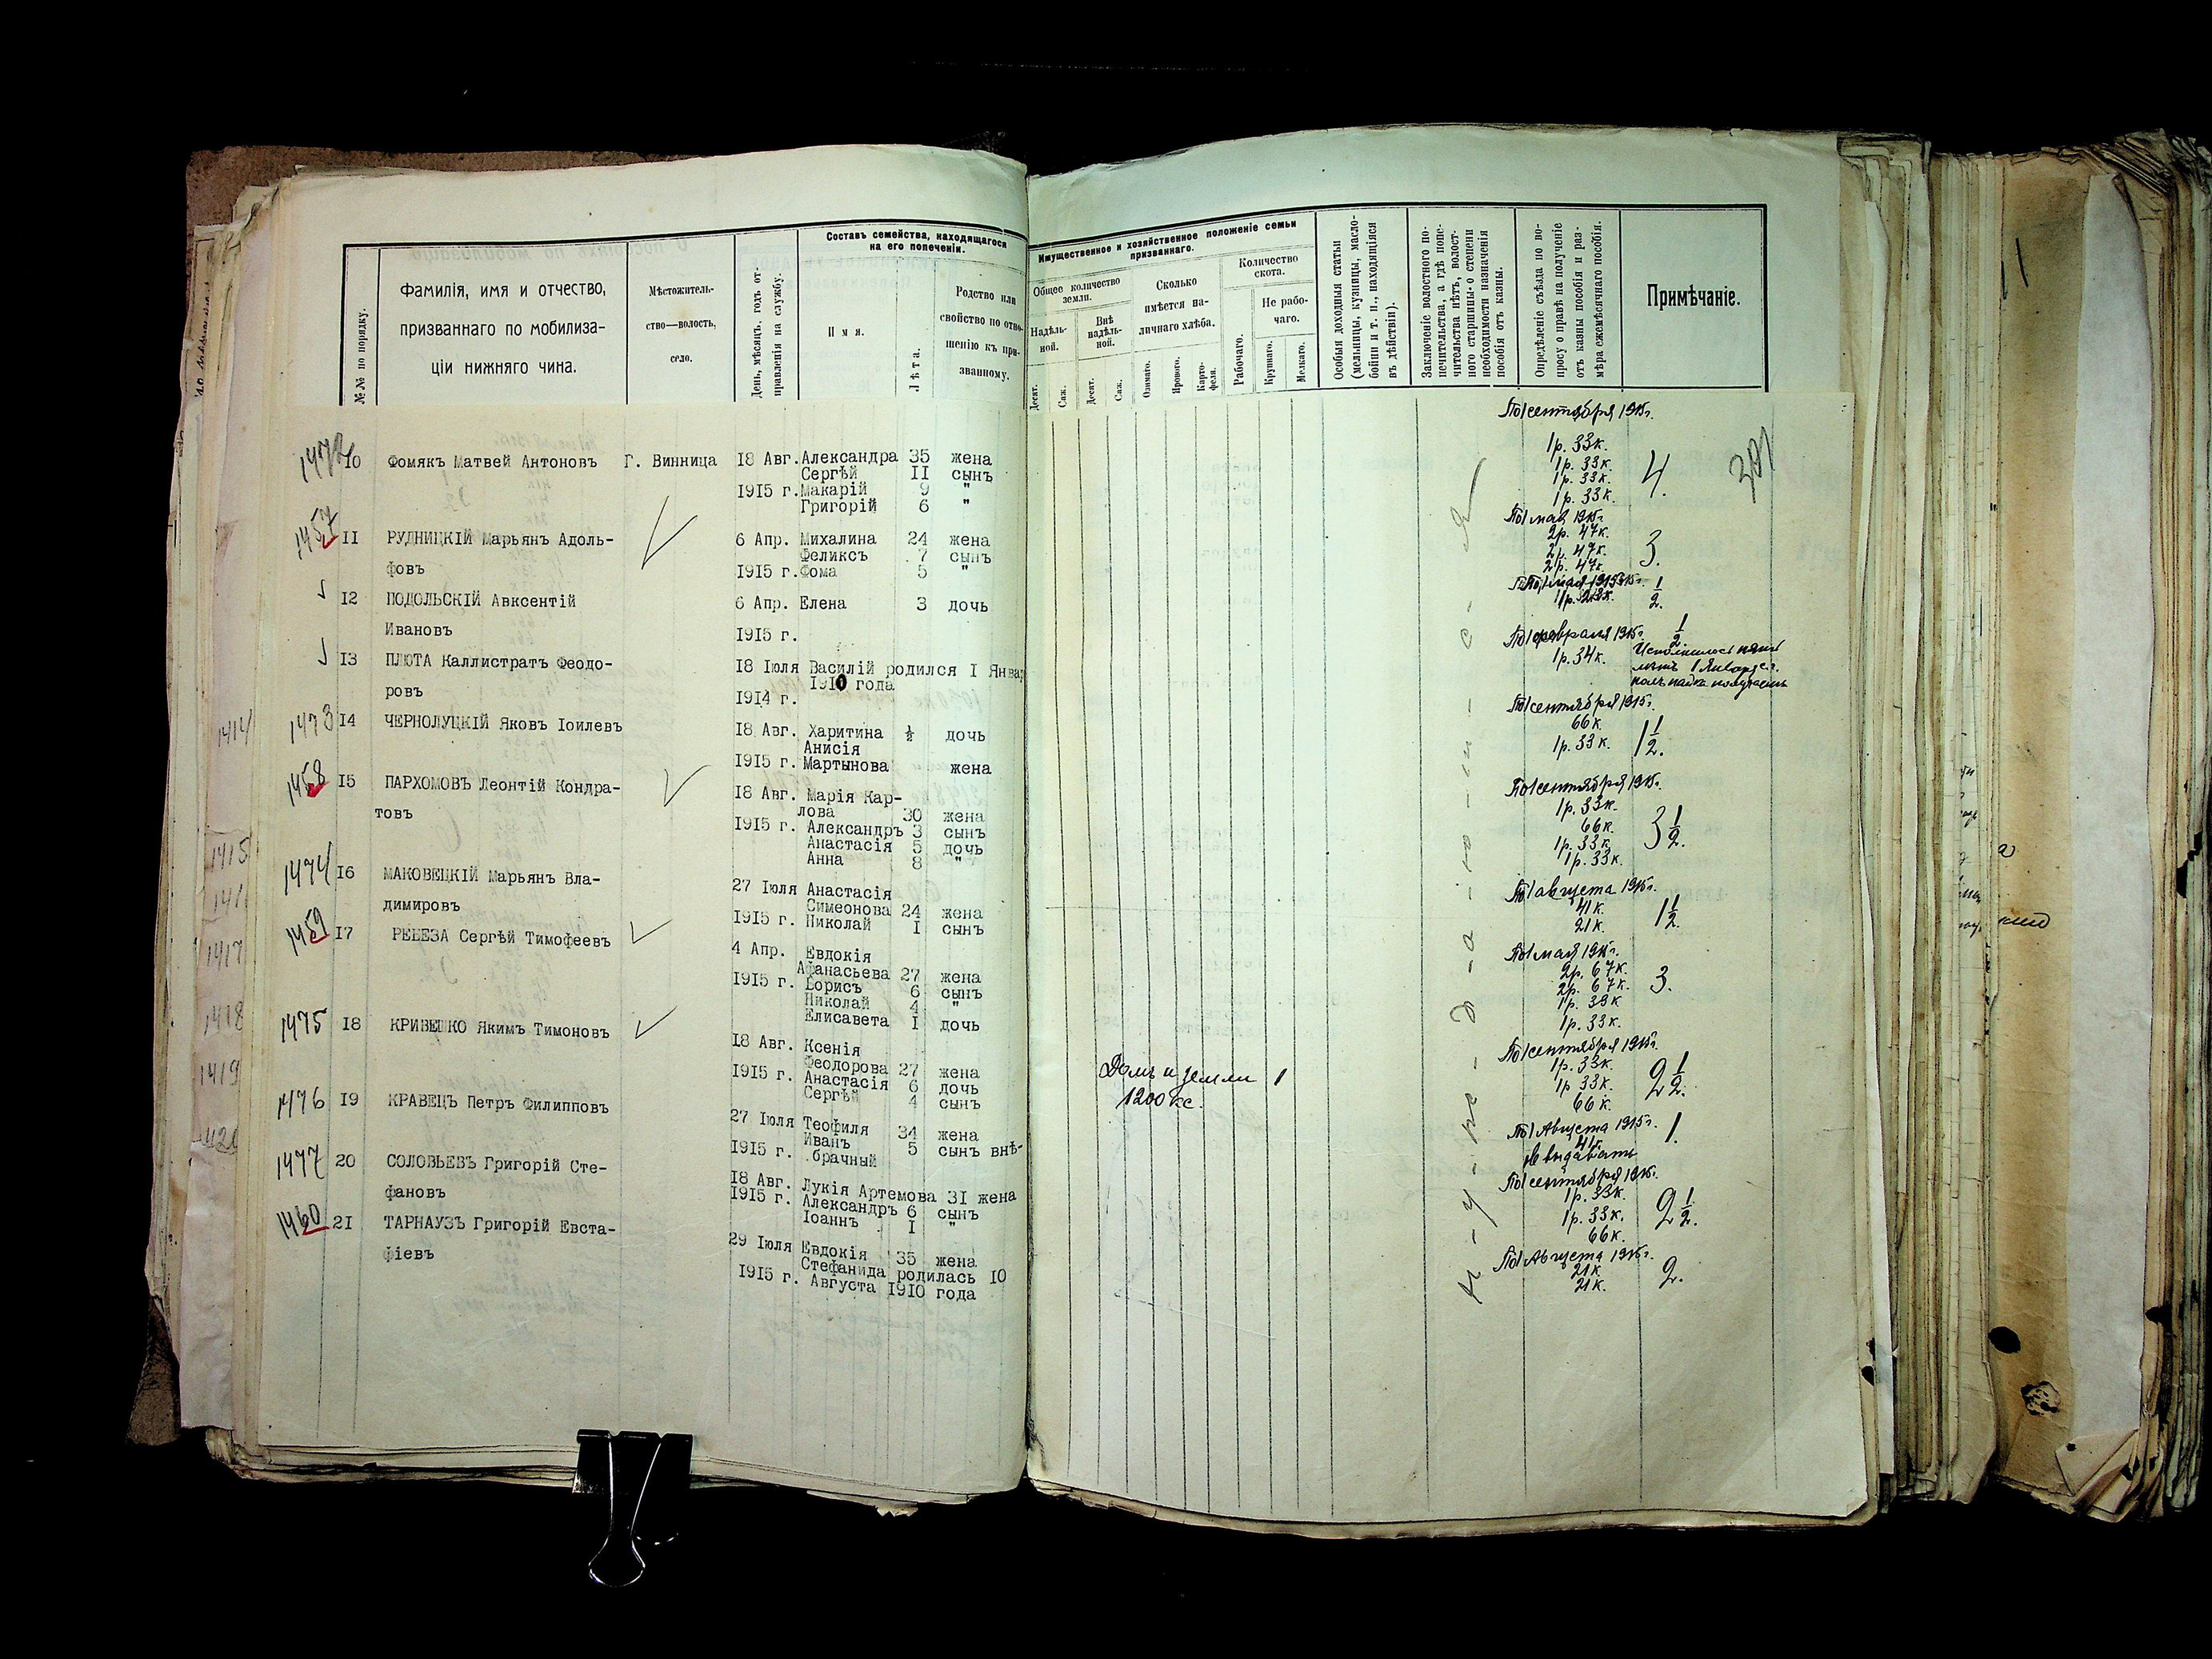 №№ по порядку.
Фамилія, имя и отчество,
призваннаго по мобилиза-
ціи нижняго чина.
Мѣстожитель-
ство—волость,
село.
День, мѣсяцъ, годъ от-
правленія на службу.
Составъ семейства, находящагося
на его попеченіи.
Имя.
Лѣта.
Родство или
свойство по отно-
шенію къ при-
званному.
Имущественное и хозяйственное положеніе семьи
призваннаго.
Общее количество
земли.
Надѣль-
ной.
Внѣ
надѣль-
ной.
Десят.
Саж.
Десят.
Саж.
Сколько
имѣется на-
личнаго хлѣба.
Озимаго.
Ярового.
Карто-
феля.
Количество
скота.
Рабочаго.
Не рабо-
чаго.
Крупнаго.
Мелкаго.
Особыя доходныя статьи
(мельницы, кузницы, масло-
бойни и т. п., находящіяся
въ дѣйствіи).
Заключеніе волостного по-
печительства, а гдѣ попе-
чительства нѣтъ, волост-
ного старшины о степени
необходимости назначенія
пособія отъ казны.
Опредѣленіе съѣзда по во-
просу о правѣ на полученіе
отъ казны пособія и раз-
мѣра ежемѣсячнаго пособія.
Примѣчаніе.
301
1472 10 Фомякъ Матвей Антоновъ Г. Винница 18 Авг. Александра 35 жена
Сергѣй II сынъ
1915 г. Макарій 9 "
Григорій 6 "
По 1 сентября 1915 г.
1р. 33к.
1р. 33к.
1р. 33к.
1р. 33к.
4.
1457 II РУДНИЦКІЙ Марьянъ Адоль-
фовъ
6 Апр. Михалина 24 жена
Феликсъ 7 сынъ
1915 г. Фома 5 "
По 1 мая 1915 г.
2р. 47к.
2р. 47к.
2р. 47к.
3.
12 ПОДОЛЬСКІЙ Авксентій
Ивановъ
6 Апр. Елена 3 дочь
1915 г.
1/2.
13 ПЛЮТА Каллистратъ Феодо-
ровъ
18 Іюля Василій родился I Январ
1910 года
1914 г.
По 1 февраля 1915 г.
1р. 34к.
1/2.
Исполнилось пять
лѣтъ 1 Января с.г.
полъ пайка получаетъ
1473 14 ЧЕРНОЛУЦКІЙ Яковъ Іоилевъ
18 Авг. Харитина ½ дочь
Анисія
1915 г. Мартынова жена
По 1 сентября 1915 г.
66 к.
1р. 33 к.
1 1/2.
1458 15 ПАРХОМОВЪ Леонтій Кондра-
товъ
18 Авг. Марія Кар-
лова 30 жена
1915 г. Александръ 3 сынъ
Анастасія 5 дочь
Анна 8 "
По 1 сентября 1915 г.
1р. 33к.
66к.
1р. 33к.
1р. 33к.
3 1/2.
1474 16 МАКОВЕЦКІЙ Марьянъ Вла-
димировъ
27 Іюля Анастасія
Симеонова 24 жена
1915 г. Николай I сынъ
По 1 августа 1915 г.
41к.
21к.
1 1/2.
1459 17 РЕБЕЗА Сергѣй Тимофеевъ
4 Апр. Евдокія
Афанасьева 27 жена
1915 г. Борисъ 6 сынъ
Николай 4 "
Елисавета I дочь
По 1 мая 1915 г.
2р. 67к.
2р. 67к.
1р. 33к
1р. 33к.
3.
1475 18 КРИВЕШКО Якимъ Тимоновъ
18 Авг. Ксенія
Феодорова 27 жена
1915 г. Анастасія 6 дочь
Сергѣй 4 сынъ
Домъ и земли 1
1200 кс.
По 1 сентября 1915 г.
1р. 33к.
1р 33к.
66 к.
2 1/2.
1476 19 КРАВЕЦЪ Петръ Филипповъ
27 Іюля Теофиля 34 жена
Иванъ 5 сынъ внѣ-
1915 г. брачный
По 1 Августа 1915 г.
41к.
не выдавать
1.
1477 20 СОЛОВЬЕВЪ Григорій Сте-
фановъ
18 Авг. Лукія Артемова 31 жена
1915 г. Александръ 6 сынъ
Іоаннъ I "
По 1 сентября 1915 г.
1р. 33к.
1р. 33к.
66к.
2 1/2.
1460 21 ТАРНАУЗЪ Григорій Евста-
фіевъ
29 Іюля Евдокія 35 жена
Стефанида родилась 10
1915 г. Августа 1910 года
По 1 Августа 1915 г.
21к
21к.
2.
н-у-ж-д-а-ю-т-с-я
1414
1415
1417
1418
1419